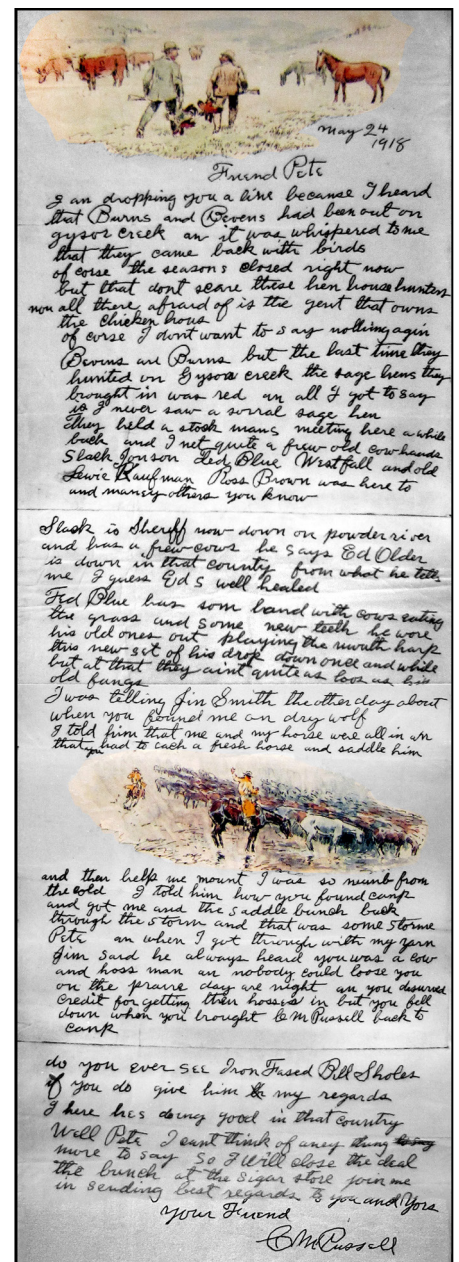 May 24
1918
Friend Pete
I an dropping you a line because I heard
that Burns and Bevens had been out on
gysor creek an it was whispered to me
that they came back with birds
of corse the seasons closed right now
but that dont scare these hen house hunters
nou all there afraid of is the gent that owns
the chicken hous
of corse I dont want to say nothing agin
Bevens an Burns but the last time they
hunted on Gyson creek the sage hens they
brought in was red an all I got to say
is I never saw a sorral sage hen
They held a stock mans meeting here a while
back and I net quite a frew old cow hands
Slack Jonson Ted Blue Westfall and old
Lewie Kaufman Ross Brown was here to
and maney others you know
Slack is Sheriff now down on powder river
and has a frew cows he says Ed Older
is down in that county from what he tells
me I guess Eds well healed
Ted Blue has som land with cows eating
the grass and some new teeth he wore
his old ones out playing the mouth harp
this new set of his drop down once and while
but at that they aint quite as loos as his
old fangs
I was telling Jin Smith the other day about
when you found me on dry wolf
I told him that me and my horse were all in an
that you had to cach a fresh horse and saddle him
and then help me mount I was so numb from
the cold I told him how you found camp
and got me and the saddle bunch back
through the storm and that was some Storme
Pete an when I got through with my yarn
Jim said he always heard you was a cow
and hoss man an nobody could loose you
on the prairie day are night an you disurved
credit for getting their hosses in but you fell
down when you brought C M Russell back to
camp
do you ever see Iron Fased Bill Sholes
if you do give him my regards
I here hes doing good in that country
Well Pete I cant think of aney thing
more to say So I will close the deal
the bunch at the sigar store join me
in sending best regards to you and Yors
your Friend
C M Russell